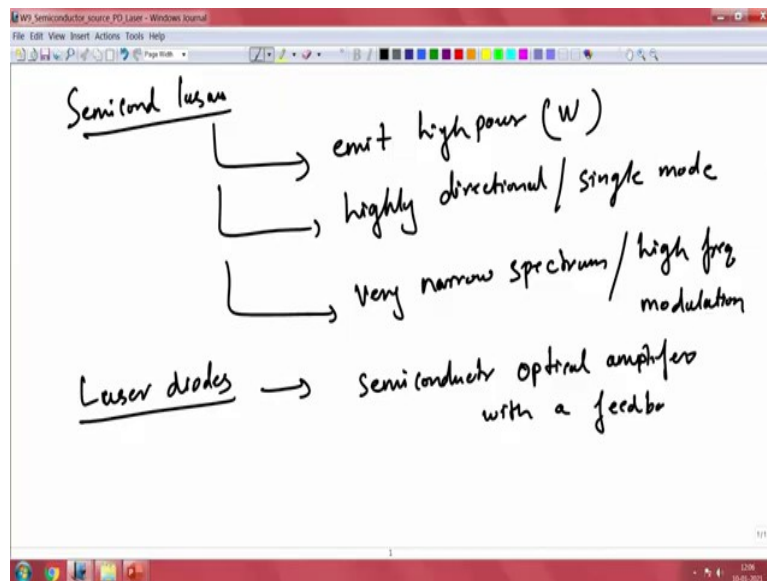 W9_Semiconductor_source_PD_Laser - Windows Journal
File Edit View Insert Actions Tools Help
Page Width
Semicond lasers
emit high power (W)
highly directional / single mode
very narrow spectrum / high freq
modulation
Laser diodes → semiconductor optical amplifiers
with a feedba
1
1/1
12:06
10-05-2021